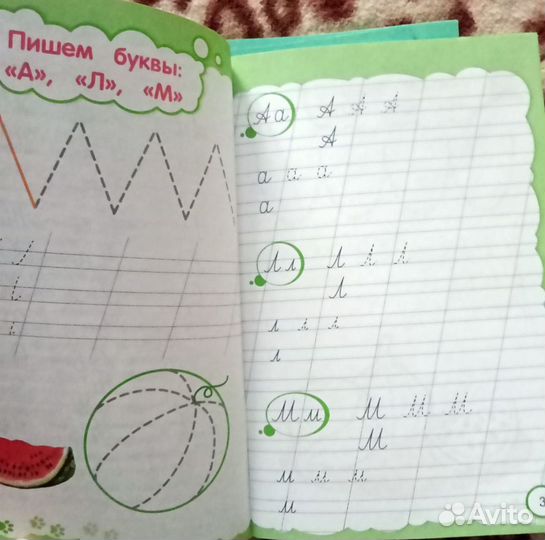 Пишем буквы:
«А», «Л», «М»
Аа А А А
А
а а а
а
Лл Л Л Л
Л
л л л
л
Мм М М М
М
м м м
м
3
Avito